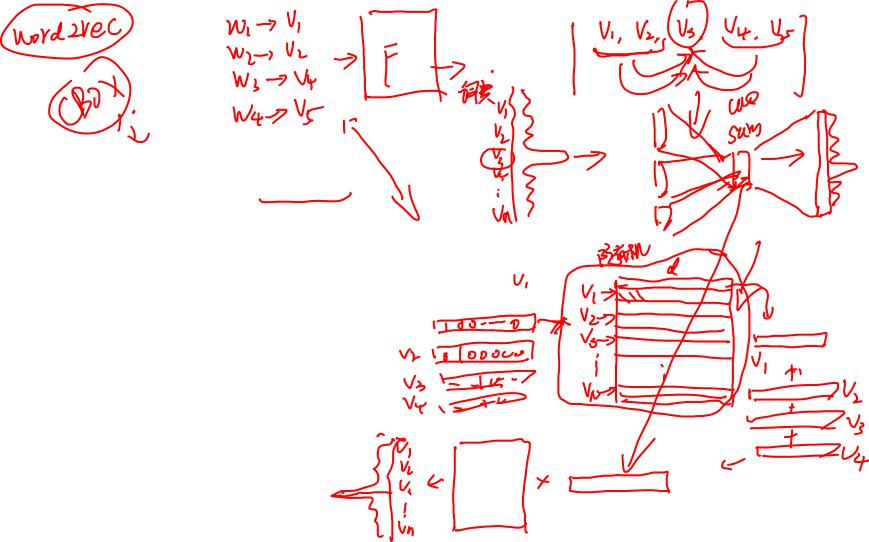 word2vec
CBOX
W₁→V₁
W₂→V₂
W₃→V₄
W₄→V₅
F
V₁, V₂, V₃ V₄, V₅
V₁
V₂
V₃
V₄
⋮
Vn
sum
d
V₁
V₁→
V₂→
V₃→
⋮
VN→
100---0
V₂ 0100000
V₃
V₄
V₁
+
V₂
+
V₃
+
V₄
V₁
V₂
⋮
Vn
×